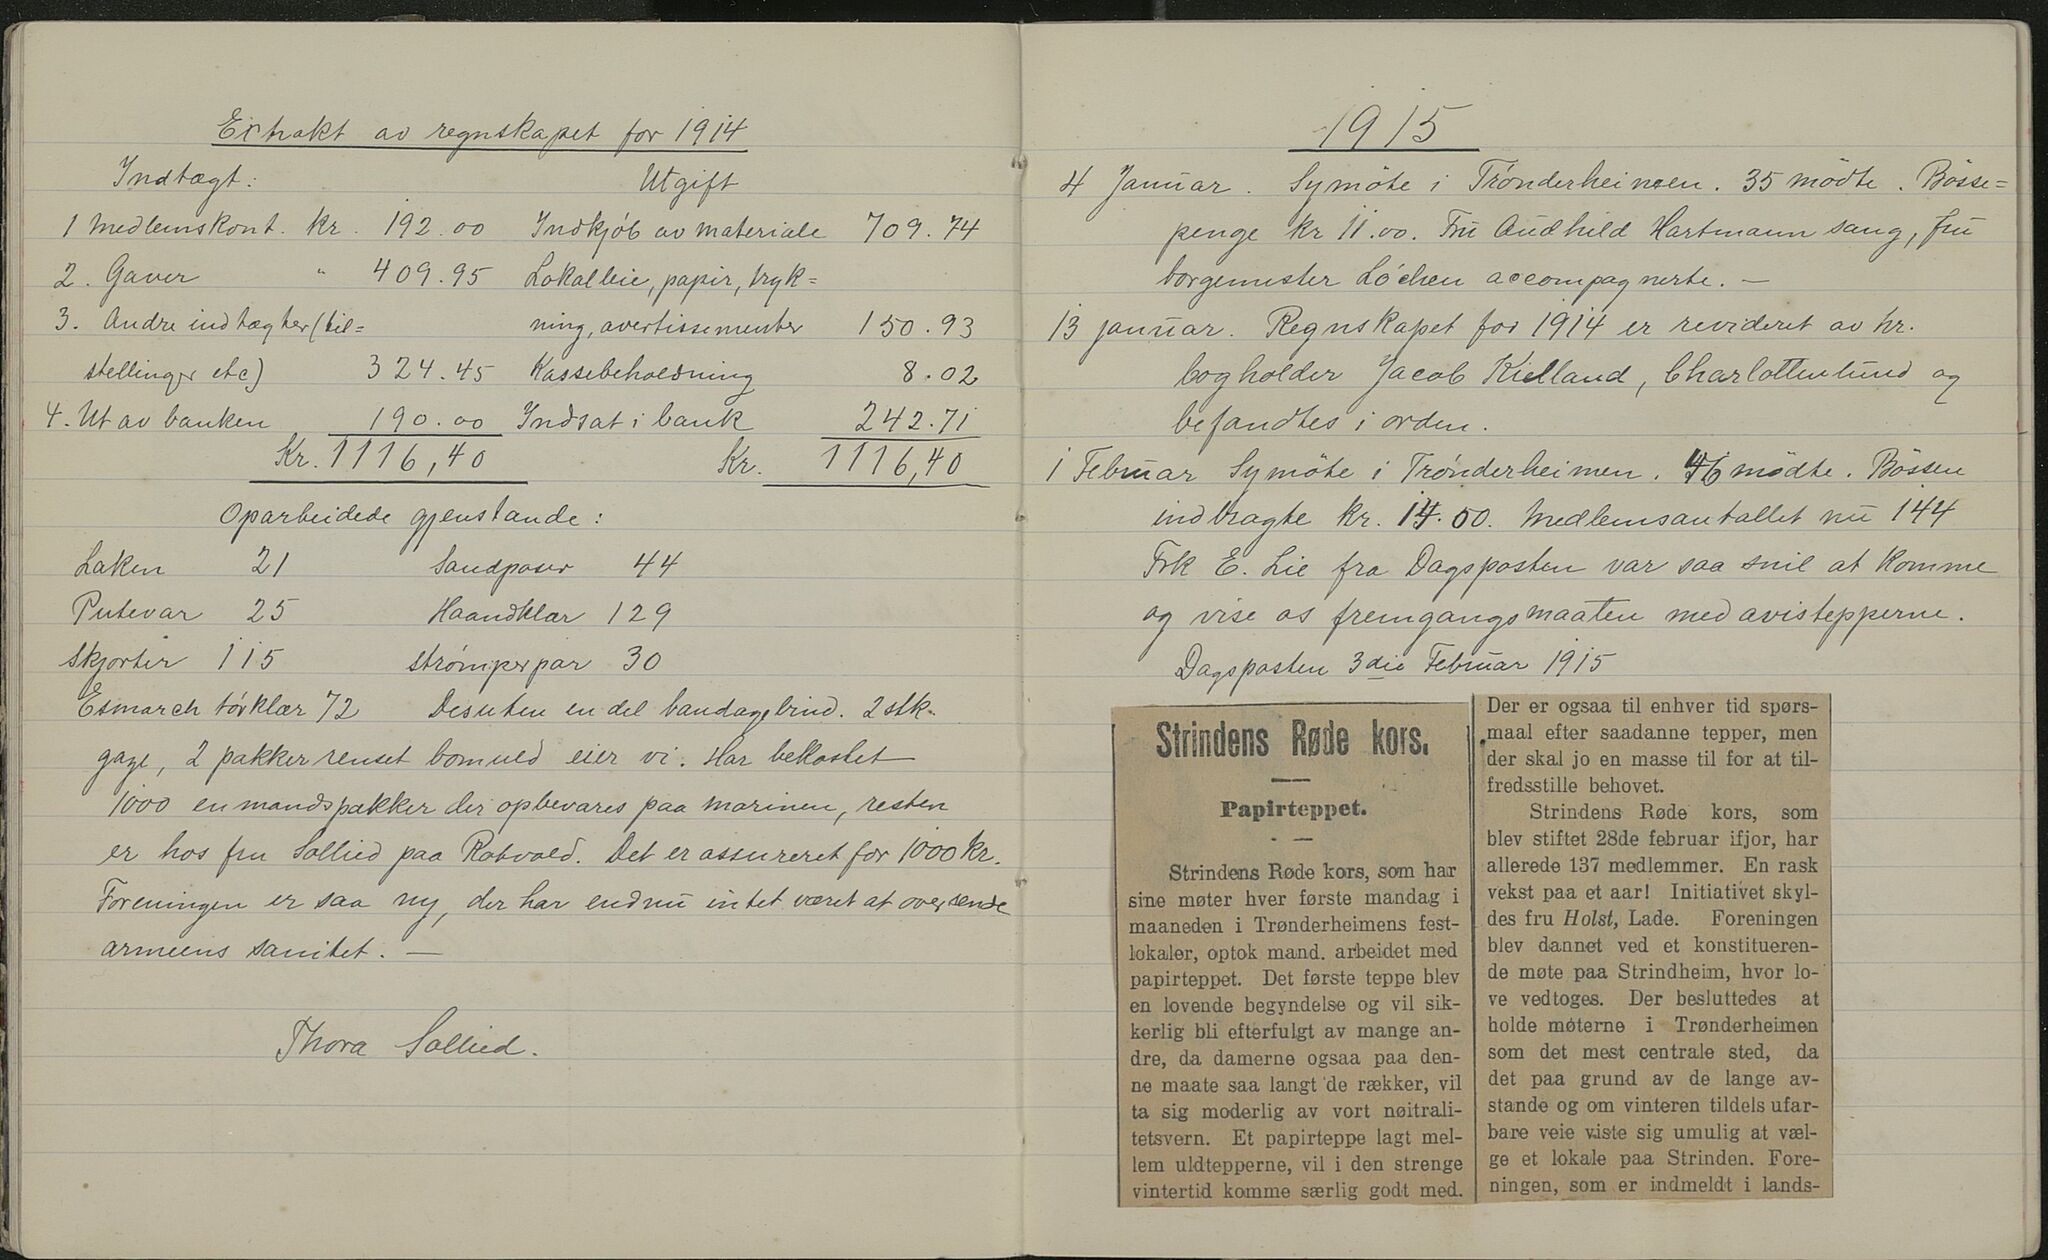 Extrakt av regnskapet for 1914
Indtægt: Utgift
1 Medlemskont. kr. 192.00 Indkjøb av materiale 709.74
2. Gaver " 409.95 Lokalleie, papir, tryk=
3. Andre indtægter (til= ning, avertissementer 150.93
stellinger etc) 324.45 Kassebeholdning 8.02
4. Ut av banken 190.00 Indsat i bank 242.71
Kr. 1116,40 Kr. 1116,40
Oparbeidede gjenstande:
Laken 21 Sandposer 44
Putevar 25 Haandklær 129
Skjorter 115 strømper par 30
Esmarch tørklær 72 Desuten en del bandagebind. 2 stk.
gaze, 2 pakker renset bomuld eier vi. Har bekostet
1000 enmandspakker der opbevares paa marinen, resten
er hos fru Sollied paa Rotvold. Det er assureret for 1000 kr.
Foreningen er saa ny, der har endnu intet været at oversende
armeens sanitet. —
Thora Sollied.
1915
4 Januar. Symöte i Trønderheimen. 35 mödte. Bösse=
penge kr 11.00. Fru Audhild Hartmann sang, fru
borgemester Løchen accompagnerte. —
13 januar. Regnskapet for 1914 er revideret av hr.
bogholder Jacob Kielland, Charlottenlund og
befandtes i orden.
1 Februar Symöte i Trønderheimen. 46 mödte. Bössen
indbragte kr. 14.50. Medlemsantallet nu 144
Frk E. Lie fra Dagsposten var saa snil at komme
og vise os fremgangsmaaten med avistepperne.
Dagsposten 3die Februar 1915
Strindens Røde kors.
Papirteppet.
Strindens Røde kors, som har
sine møter hver første mandag i
maaneden i Trønderheimens fest-
lokaler, optok mand. arbeidet med
papirteppet. Det første teppe blev
en lovende begyndelse og vil sik-
kerlig bli efterfulgt av mange an-
dre, da damerne ogsaa paa den-
ne maate saa langt de rækker, vil
ta sig moderlig av vort nøitrali-
tetsvern. Et papirteppe lagt mel-
lem uldtepperne, vil i den strenge
vintertid komme særlig godt med.
Der er ogsaa til enhver tid spørs-
maal efter saadanne tepper, men
der skal jo en masse til for at til-
fredsstille behovet.
Strindens Røde kors, som
blev stiftet 28de februar ifjor, har
allerede 137 medlemmer. En rask
vekst paa et aar! Initiativet skyl-
des fru Holst, Lade. Foreningen
blev dannet ved et konstitueren-
de møte paa Strindheim, hvor lo-
ve vedtoges. Der besluttedes at
holde møterne i Trønderheimen
som det mest centrale sted, da
det paa grund av de lange av-
stande og om vinteren tildels ufar-
bare veie viste sig umulig at væl-
ge et lokale paa Strinden. Fore-
ningen, som er indmeldt i lands-